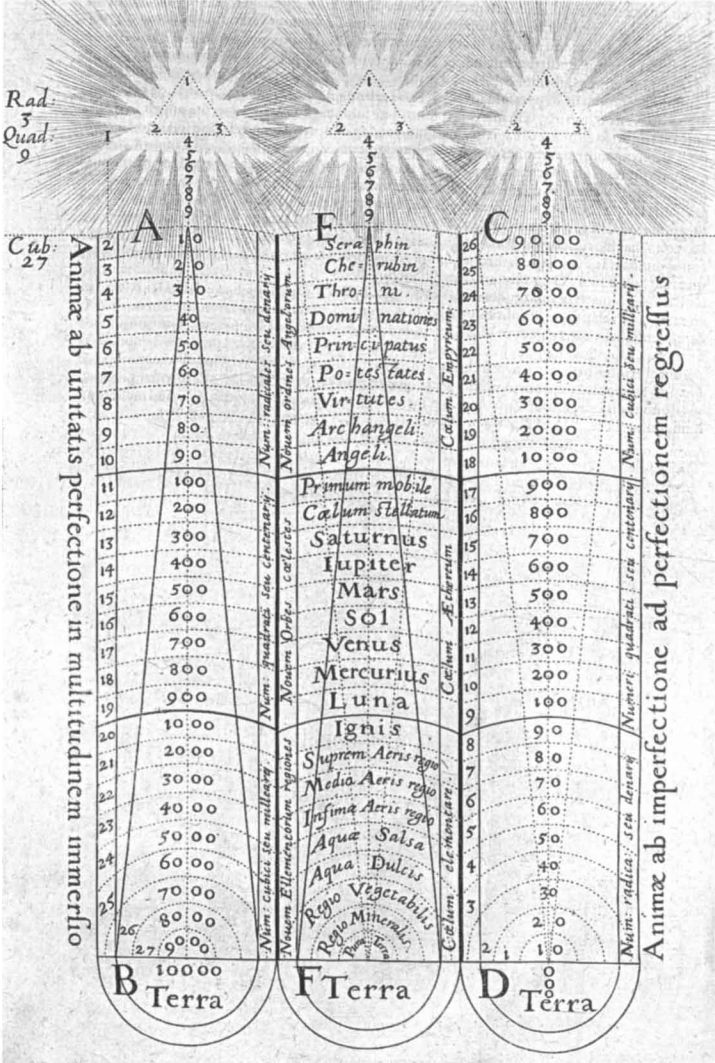 Rad:
3
Quad:
9
Cub:
27
1
1
2 3
4
5
6
7
8
9
1
2 3
4
5
6
7
8
9
1
2 3
4
5
6
7
8
9
Animæ ab unitatis perfectione in multitudinem immersio
A
2 10
3 20
4 30
5 40
6 50
7 60
8 70
9 80
10 90
11 100
12 200
13 300
14 400
15 500
16 600
17 700
18 800
19 900
20 1000
21 2000
22 3000
23 4000
24 5000
6000
25 7000
26 8000
27 9000
B
10000
Terra
Num: radicales seu denarij
Num: quadrati seu centenarij.
Num: cubici seu millearij.
E
Nouem ordines Angelorum
Nouem Orbes cœlestes
Nouem Ellementorum regiones
Seraphin
Cherubin
Throni.
Dominationes
Principatus
Po=testates.
Virtutes.
Archangeli
Angeli.
Primum mobile
Cœlum stellatum
Saturnus
Iupiter
Mars
Sol
Venus
Mercurius
Luna
Ignis
Suprem Aeris regio
Media Aeris regio
Infima Aeris regio
Aquæ Salsa
Aqua Dulcis
Regio Vegetabilis
Regio Mineralis.
Terra
F
Terra
Cœlum Empyreum
Cœlum Æthereum
Cœlum elementare.
C
26 9000
25 8000
24 7000
23 6000
22 5000
21 4000
20 3000
19 2000
18 1000
17 900
16 800
15 700
14 600
13 500
12 400
11 300
10 200
9 100
8 90
7 80
6 70
5 60
4 50
3 40
30
20
2 1 10
D
Terra
Num: cubici seu millearij.
Numeri quadrati seu centenarij
Num: radica: seu denarij
Animæ ab imperfectione ad perfectionem regressus